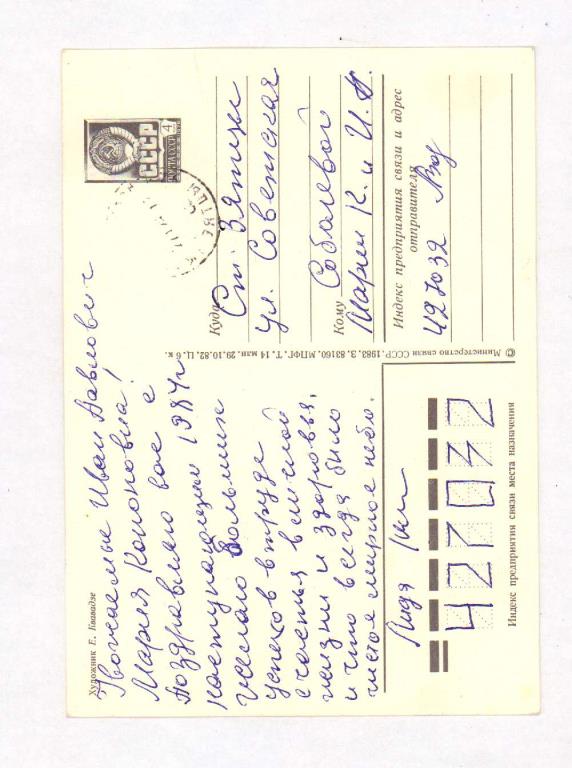 Художник Е. Квавадзе
Уважаемые Иван Павлович
Мария Кононовна!
Поздравляю вас с
наступающим 1984г
желаю больших
успехов в труде
счастья в личной
жизни и здоровья,
и что всегда было
чистое мирное небо.
Лида
СССР
ПОЧТА СССР
4
Куда Ст. Зятцы
ул. Советская
Кому Соболевой
Марии К. и И. П.
Индекс предприятия связи и адрес
отправителя
427032
© Министерство связи СССР. 1983. З. 83160. МПФГ. Т. 14 млн. 29.10.82. Ц. 6 к.
427032
Индекс предприятия связи места назначения